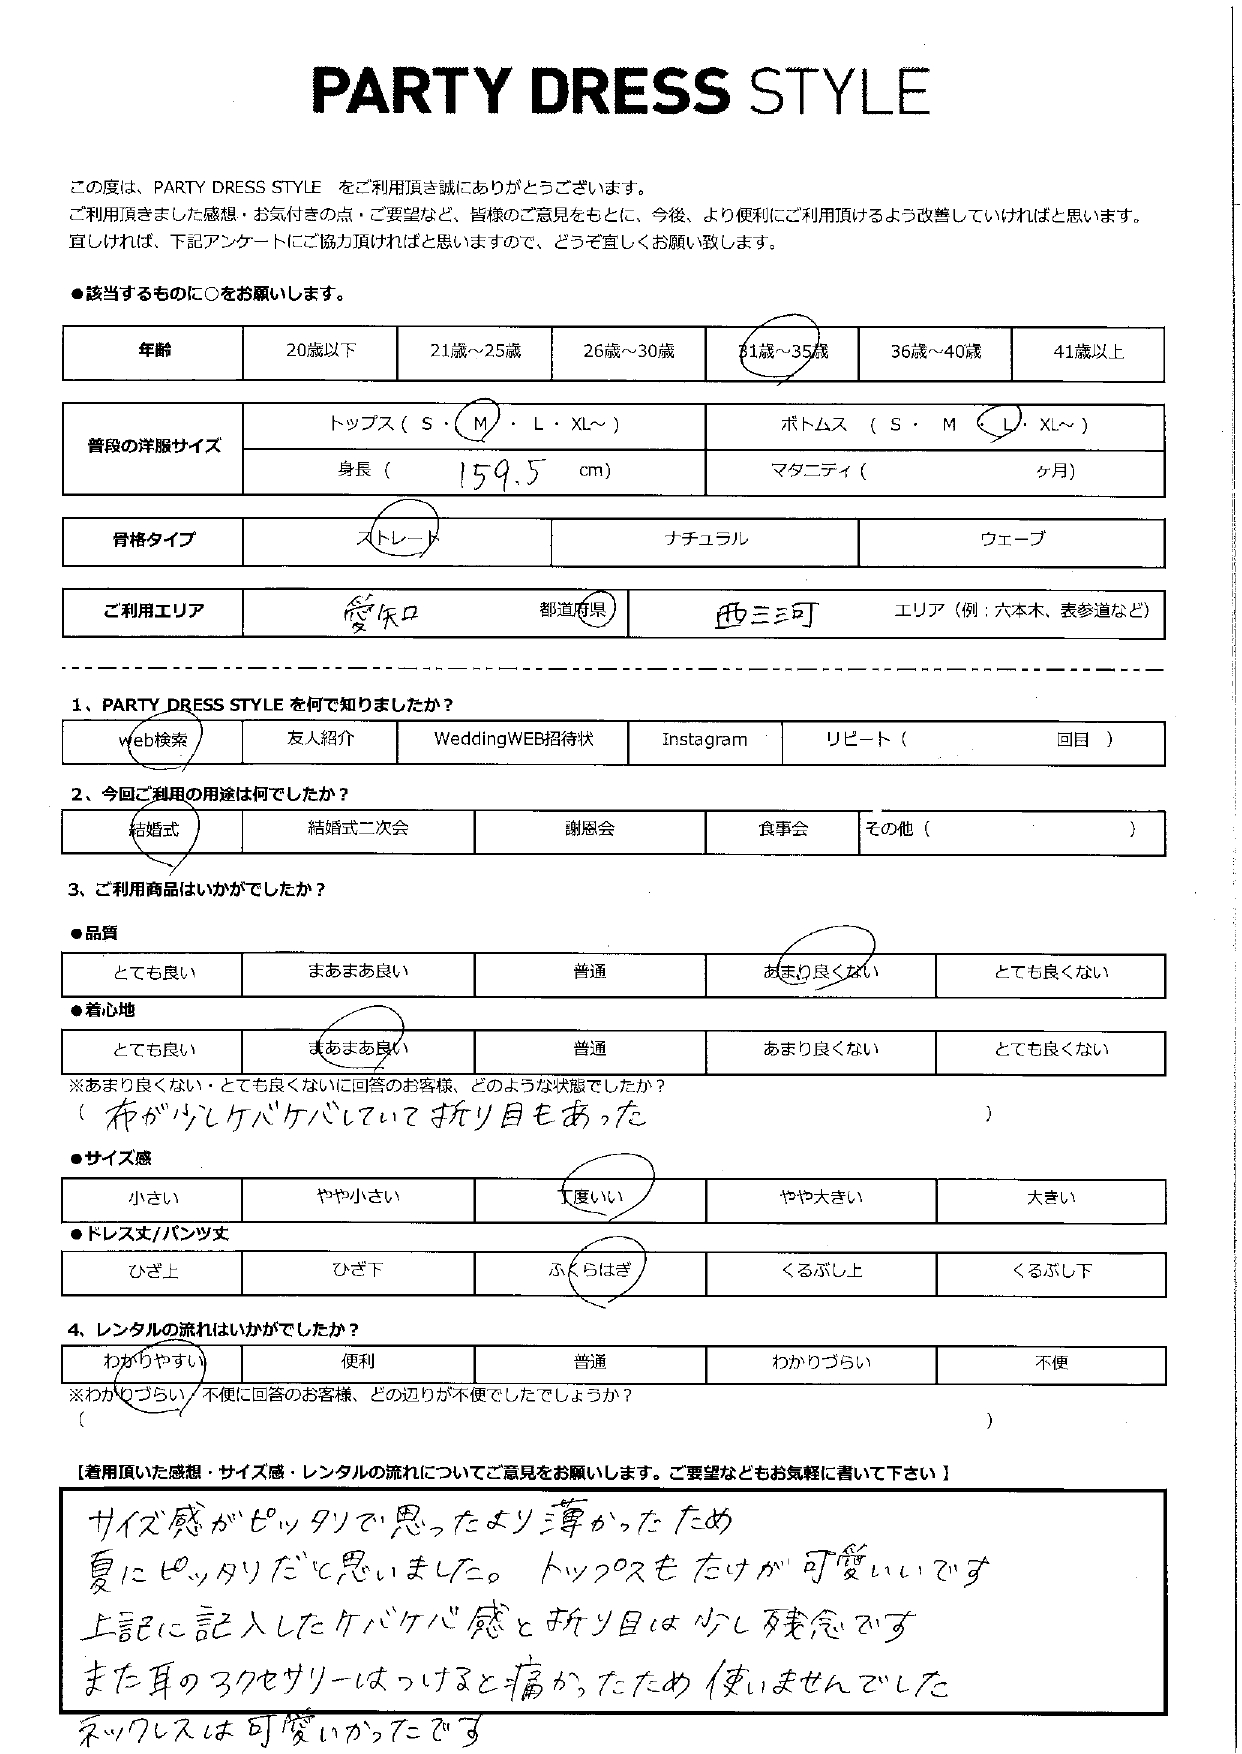 PARTY DRESS STYLE
この度は、PARTY DRESS STYLE をご利用頂き誠にありがとうございます。
ご利用頂きました感想・お気付きの点・ご要望など、皆様のご意見をもとに、今後、より便利にご利用頂けるよう改善していければと思います。
宜しければ、下記アンケートにご協力頂ければと思いますので、どうぞ宜しくお願い致します。
●該当するものに○をお願いします。
年齢 20歳以下 21歳～25歳 26歳～30歳 31歳～35歳 36歳～40歳 41歳以上
普段の洋服サイズ トップス ( S ・ M ・ L ・ XL～ ) ボトムス ( S ・ M ・ L ・ XL～ )
身長 ( 159.5 cm) マタニティ ( ヶ月)
骨格タイプ ストレート ナチュラル ウェーブ
ご利用エリア 愛知 都道府県 西三河 エリア（例：六本木、表参道など）
1、PARTY DRESS STYLE を何で知りましたか？
web検索 友人紹介 WeddingWEB招待状 Instagram リピート ( 回目 )
2、今回ご利用の用途は何でしたか？
結婚式 結婚式二次会 謝恩会 食事会 その他 ( )
3、ご利用商品はいかがでしたか？
●品質
とても良い まあまあ良い 普通 あまり良くない とても良くない
●着心地
とても良い まあまあ良い 普通 あまり良くない とても良くない
※あまり良くない・とても良くないに回答のお客様、どのような状態でしたか？
( 布が少しケバケバしていて折り目もあった )
●サイズ感
小さい やや小さい 丁度いい やや大きい 大きい
●ドレス丈/パンツ丈
ひざ上 ひざ下 ふくらはぎ くるぶし上 くるぶし下
4、レンタルの流れはいかがでしたか？
わかりやすい 便利 普通 わかりづらい 不便
※わかりづらい/不便に回答のお客様、どの辺りが不便でしたでしょうか？
( )
【着用頂いた感想・サイズ感・レンタルの流れについてご意見をお願いします。ご要望などもお気軽に書いて下さい】
サイズ感がピッタリで思ったより薄かったため
夏にピッタリだと思いました。 トップスもたけが可愛いいです
上記に記入したケバケバ感と折り目は少し残念です
また耳のアクセサリーはつけると痛かったため使いませんでした
ネックレスは可愛いかったです